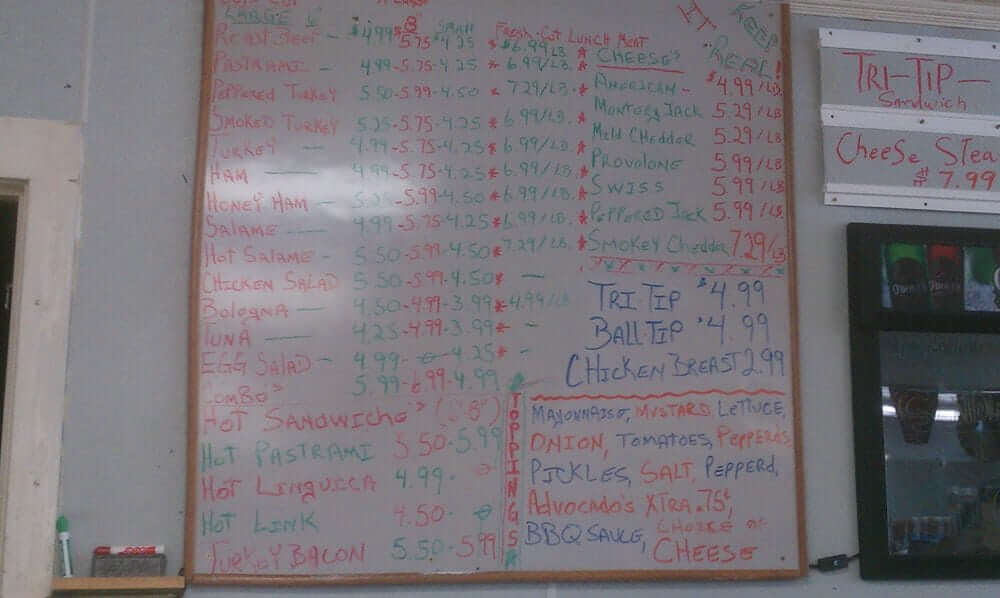 LARGE 6"
8"
SMALL
FRESH-CUT LUNCH MEAT
KEEP
IT
REAL!
ROAST BEEF - $4.99 5.75 $4.25 * $6.99 LB. *
CHEESE'S
PASTRAMI - 4.99-5.75-4.25 * 6.99/LB. *
AMERICAN - $4.99/LB.
PEPPERED TURKEY 5.50-5.99-4.50 * 7.29/LB. *
MONTEREY JACK 5.29/LB
SMOKED TURKEY 5.25-5.75-4.25 * 6.99/LB. *
MILD CHEDDER 5.29/LB
TURKEY - 4.99-5.75-4.25 * 6.99/LB. *
PROVOLONE 5.99/LB
HAM - 4.99-5.75-4.25 * 6.99/LB. *
SWISS 5.99/LB
HONEY HAM - 5.25-5.99-4.50 * 6.99/LB. *
PEPPERED JACK 5.99/LB.
SALAME - 4.99-5.75-4.25 * 6.99/LB. *
SMOKEY Chedder 7.29/LB
HOT SALAME - 5.50-5.99-4.50 * 7.29/LB. *
CHICKEN SALAD 5.50-5.99-4.50 * -
TRI-TIP $4.99
BOLOGNA - 4.50-4.99-3.99 * 4.99/LB
BALL-TIP $4.99
TUNA - 4.25-4.99-3.99 * -
CHICKEN BREAST 2.99
EGG SALAD - 4.99- -4.25 * -
COMBO'S 5.99-6.99-4.99
HOT SANDWICHE'S (6" 8")
HOT PASTRAMI 5.50-5.99
HOT LINGUICCA 4.99-
HOT LINK 4.50-
TURKEY BACON 5.50-5.99
TOPPINGS
MAYONNAISE, MUSTARD, LETTUCE,
ONION, TOMATOES, PEPPERD'S
PICKLES, SALT, PEPPERD,
ADVOCADO'S XTRA .75¢,
BBQ SAUCE, CHOICE OF
CHEESE
TRI-TIP -
Sandwich
Cheese Stea
$7.99